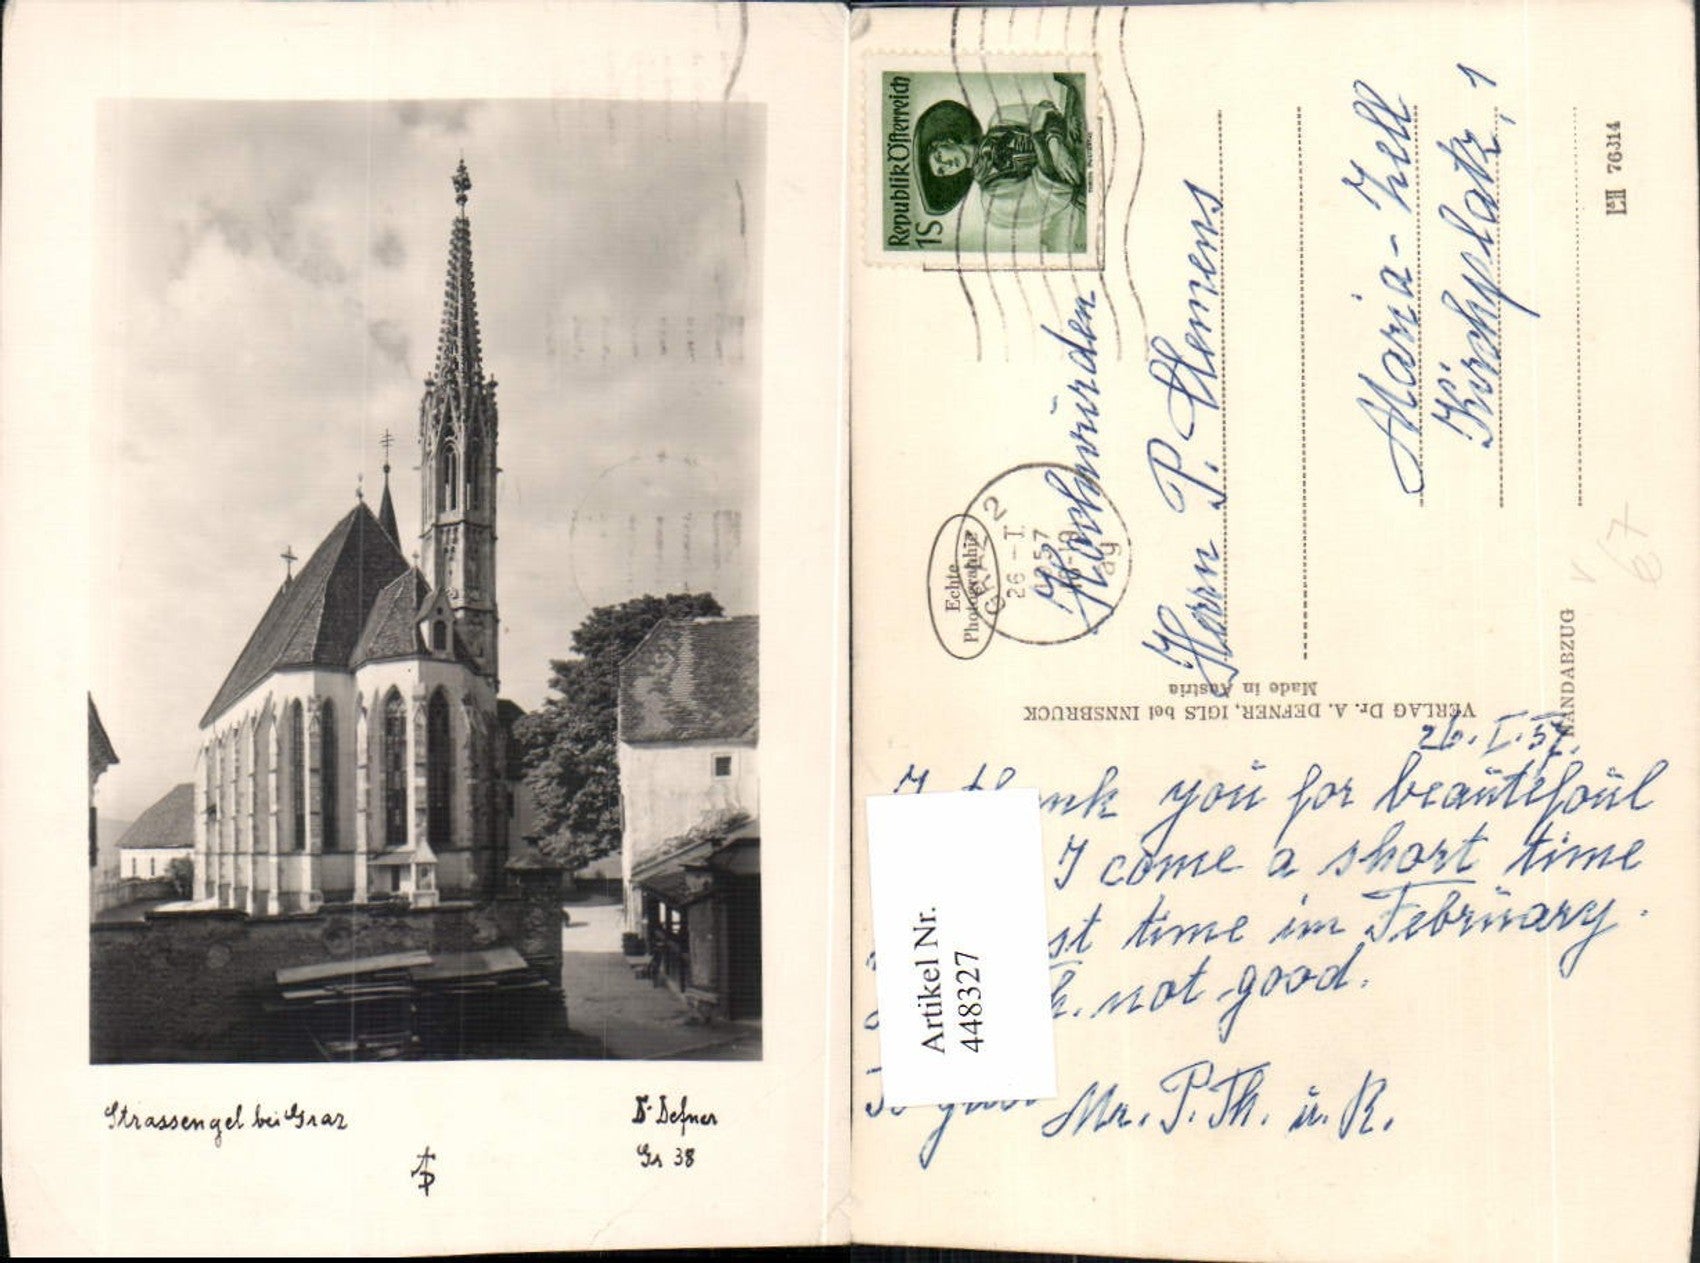 Strassengel bei Graz
Dr. Defner
Gr 38
Republik Österreich
1S
Echte
Photographie
GRAZ 2
26 - I
1957
Hochwürden
Herrn P. Clemens
Maria-Zell
Kirchplatz, 1
L&H 76314
HANDABZUG
VERLAG Dr. A. DEFNER, IGLS bei INNSBRUCK
Made in Austria
67
26. I. 57.
I thank you for beaütefoül
I come a short time
time im Febrüary.
not good.
Mr. P. Th. ü. R.
Artikel Nr.
448327